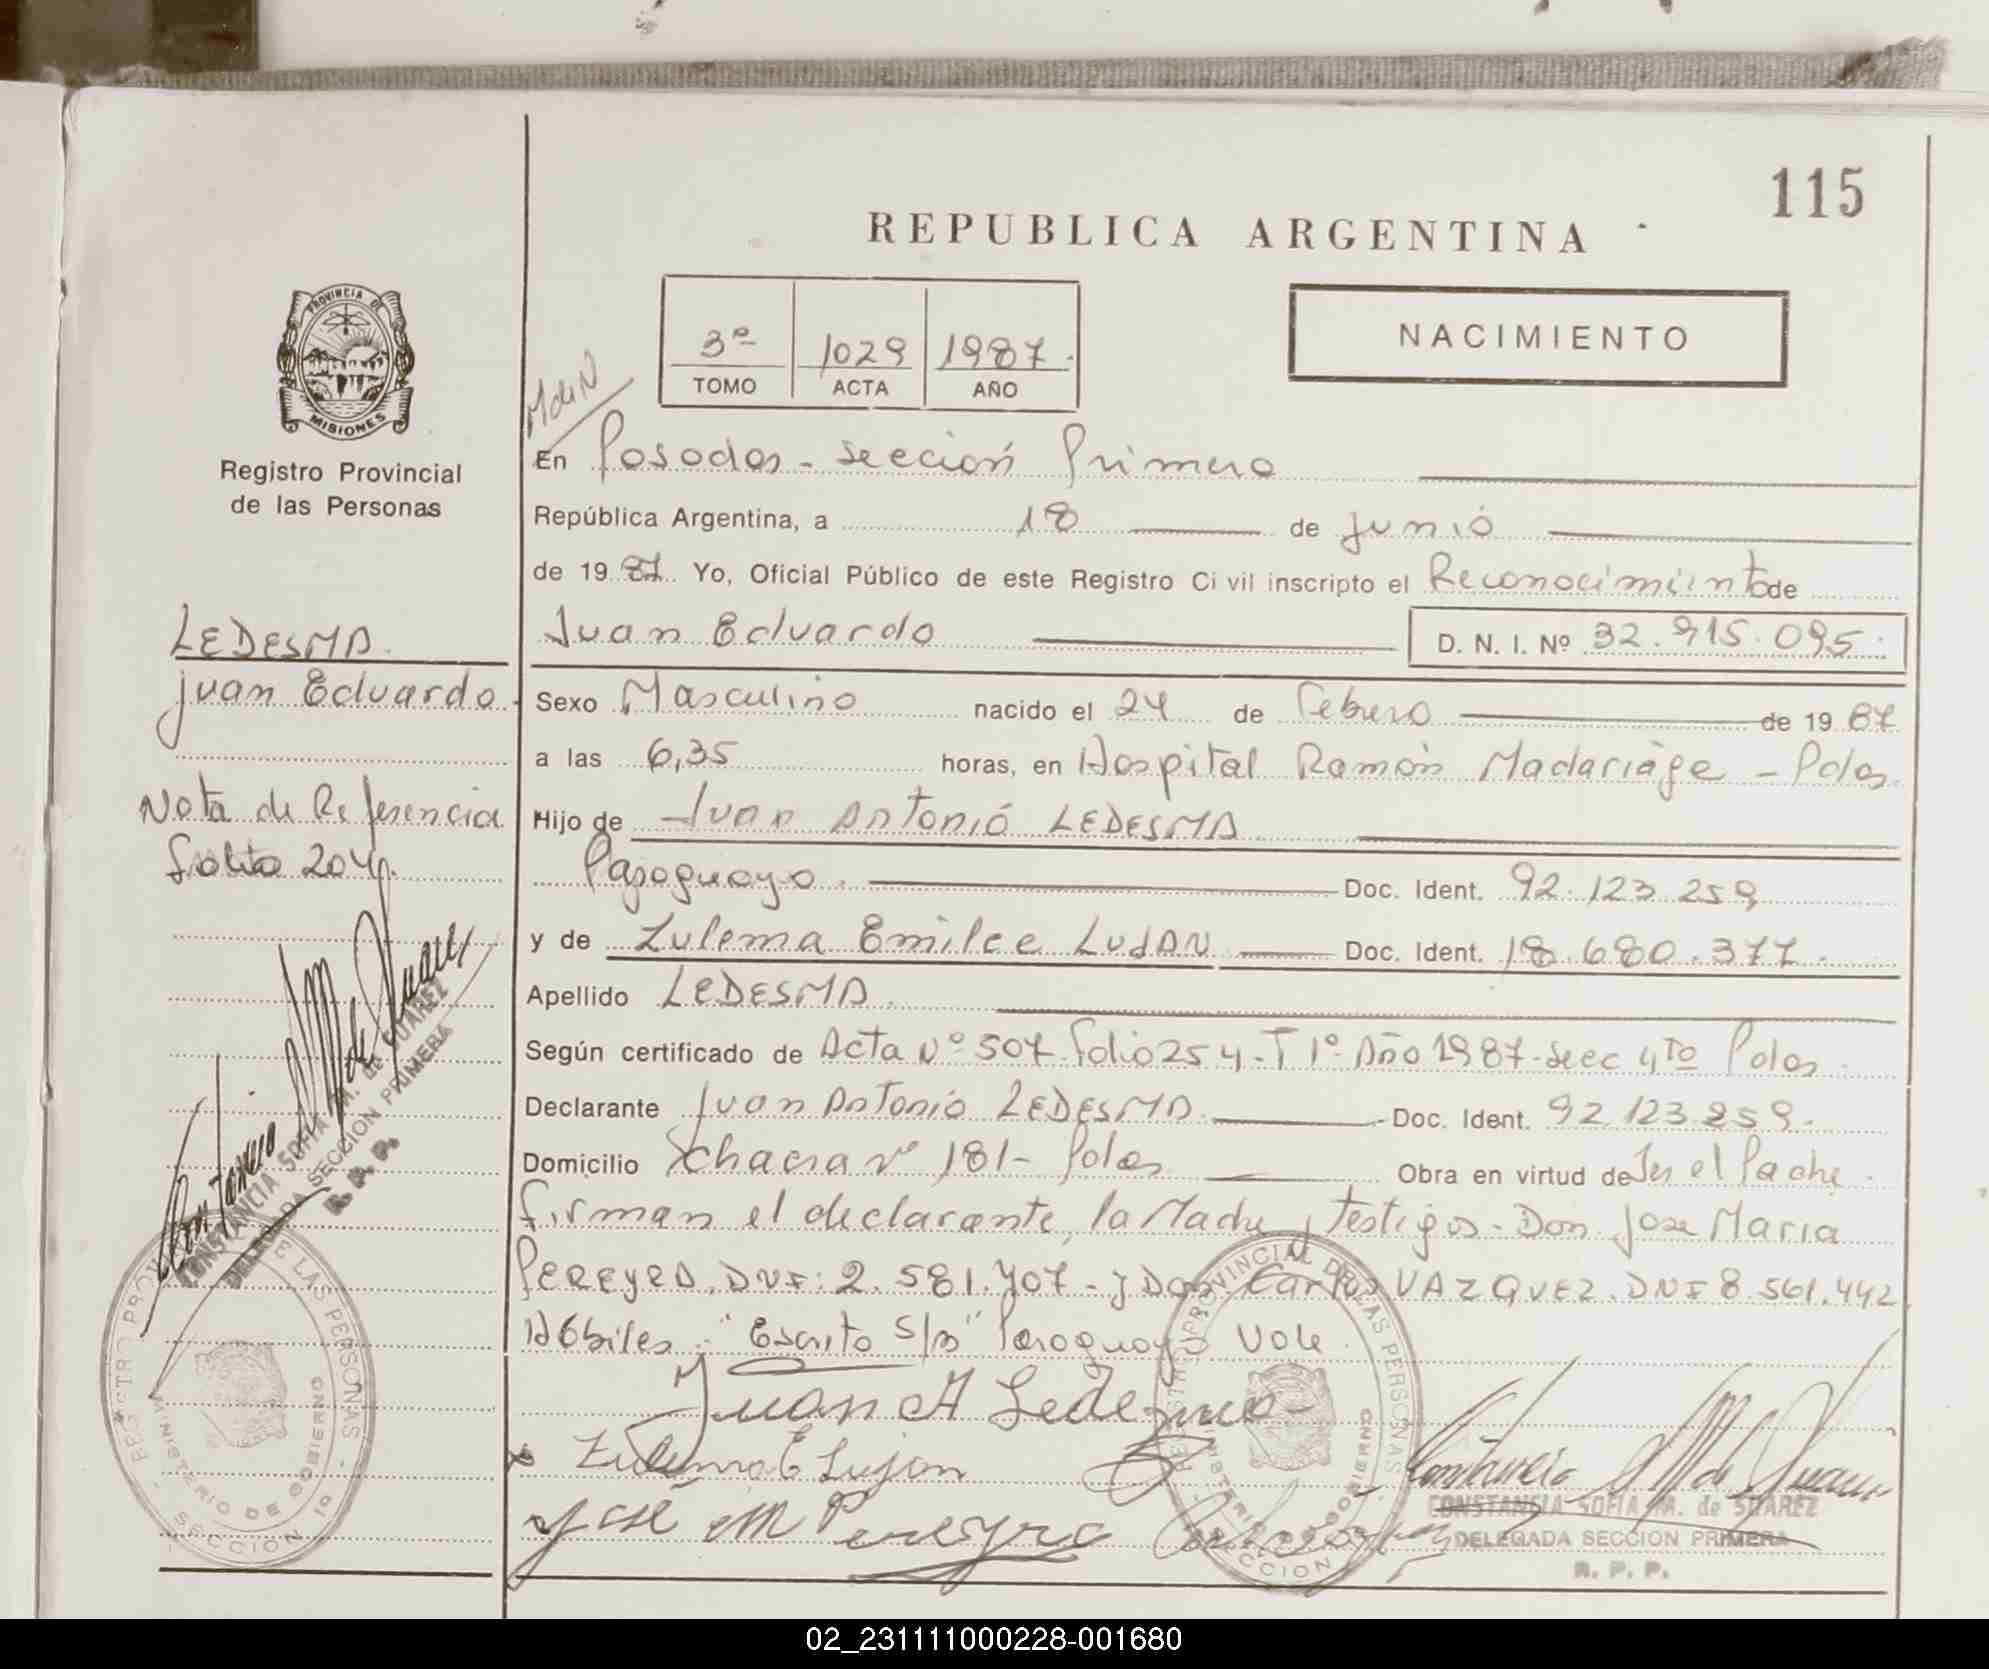 115
REPUBLICA ARGENTINA
PROVINCIA DE
MISIONES
Registro Provincial
de las Personas
3º 1029 1987.
TOMO ACTA AÑO
NACIMIENTO
En Posadas - Sección Primera
República Argentina, a 18 de Junio
de 19 87. Yo, Oficial Público de este Registro Civil inscripto el Reconocimiento de
Juan Eduardo D. N. I. Nº 32.915.095.
LEDESMA.
Juan Eduardo.
Sexo Masculino nacido el 24 de Febrero de 19 87
a las 6,35 horas, en Hospital Ramón Madariaga - Pdas.
Nota de Referencia
folio 204
Hijo de Juan Antonio LEDESMA
Paraguayo. Doc. Ident. 92.123.259
y de Zulema Emilce LUJAN Doc. Ident. 18.680.377.
Apellido LEDESMA.
Según certificado de Acta Nº 507 folio 254 - T 1º Año 1987 - Secc 4to Pdas.
Declarante Juan Antonio LEDESMA. Doc. Ident. 92.123.259.
Domicilio chacra Nº 181 - Pdas. Obra en virtud de Ser el Padre.
firman el declarante, la Madre y testigos - Don Jose Maria
PEREYRA. DNI: 2.581.407 - y Don Carlos VAZQUEZ. DNI 8.561.442
Hábiles. "Escrito S/B" Paraguayo Vale.
Juan A Ledesma
Zulema E Lujan
Jose M Pereyra
CONSTANCIA SOFIA M. de SUAREZ
DELEGADA SECCION PRIMERA
R. P. P.
CONSTANCIA SOFIA M. de SUAREZ
DELEGADA SECCION PRIMERA
R. P. P.
REGISTRO PROVINCIAL DE LAS PERSONAS
MINISTERIO DE GOBIERNO
SECCION 1a
REGISTRO PROVINCIAL DE LAS PERSONAS
MINISTERIO DE GOBIERNO
SECCION
02_231111000228-001680